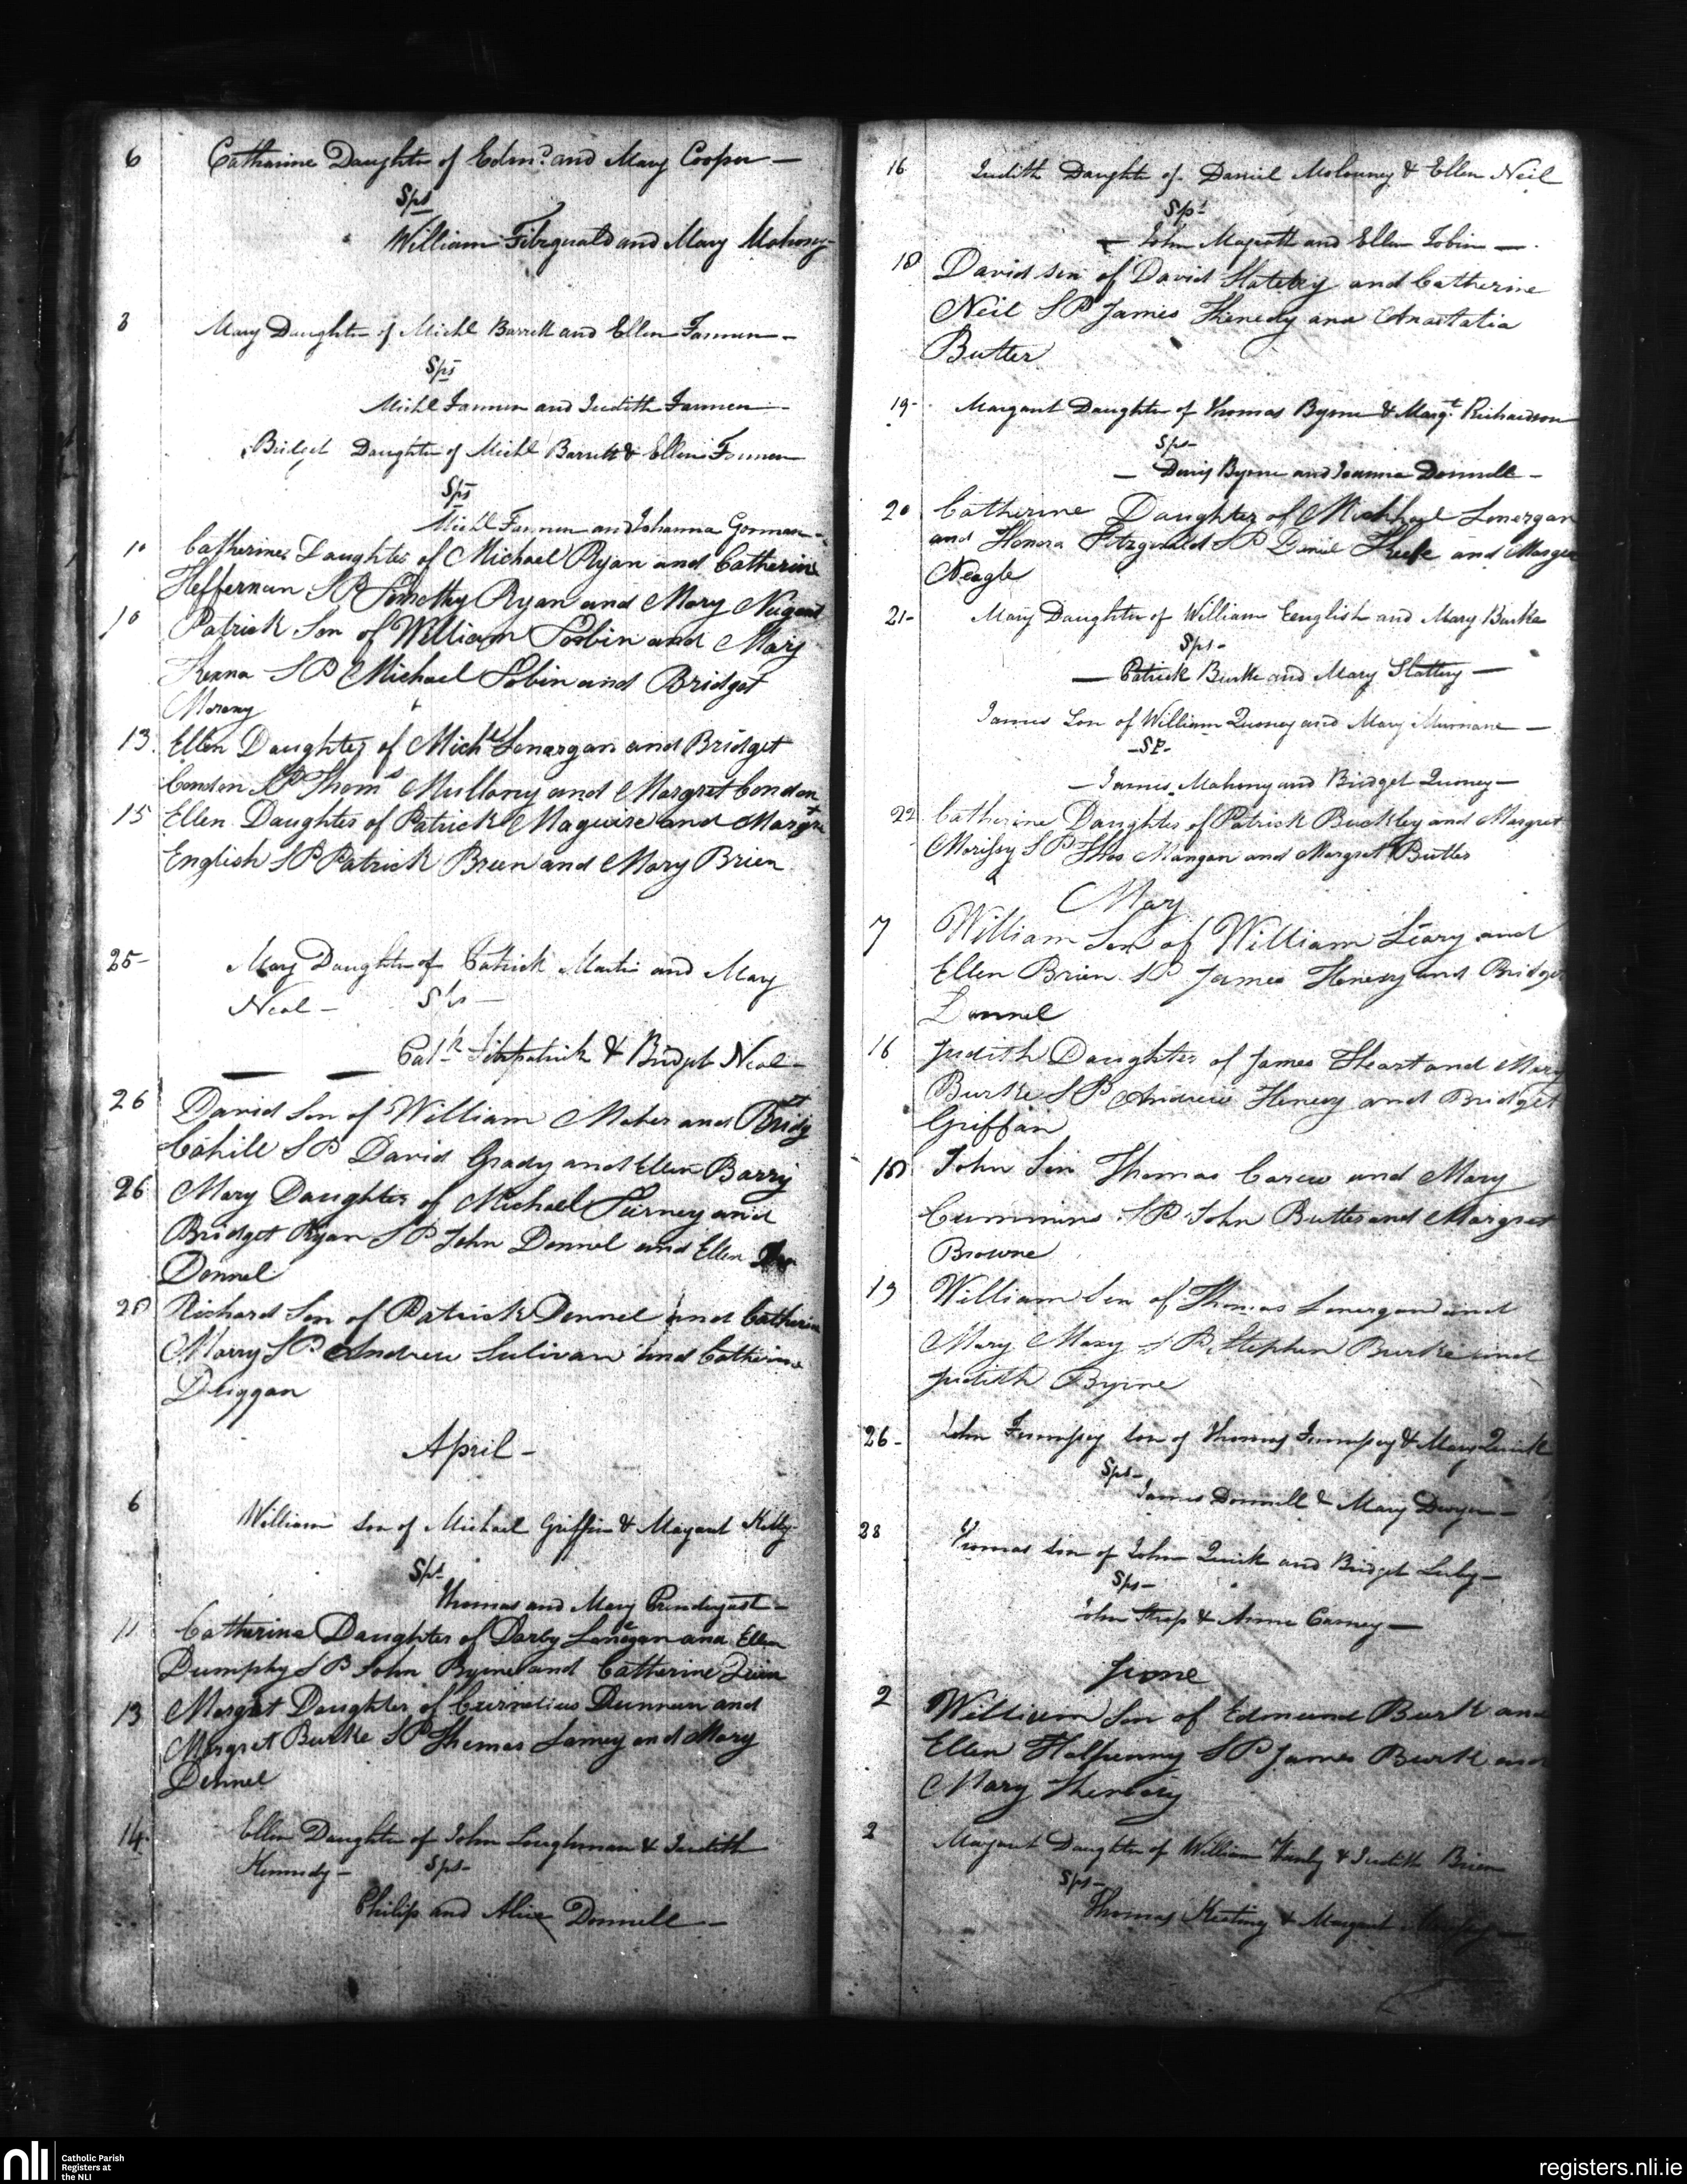 6 Catharine Daughter of Edmd. and Mary Cooper —
Sps
William Fitzgerald and Mary Mahony
8 Mary Daughter of Michl Barrett and Ellen Fannen —
Sps
Michl Fannen and Judith Fannen —
Bridget Daughter of Michl Barrett & Ellen Fannen
Sps
Michl Fannen and Johanna Gorman —
10 Catherine Daughter of Michael Ryan and Catherine
Heffernan SP Timothy Ryan and Mary Nugent
10 Patrick Son of William Tobin and Mary
SP Michael Tobin and Bridget
13 Ellen Daughter of Michl Lonargan and Bridget
Condon SP Thoms Mullony and Margret Condon
15 Ellen Daughter of Patrick Maguire and Margrt
English SP Patrick Breen and Mary Brien
25 — Mary Daughter of Patrick Martin and Mary
Neal — Sps —
Patk Fitzpatrick & Bridget Neal —
26 David Son of William Maher and Bridgt
Cahill SP David Grady and Ellen Barry
26 Mary Daughter of Michael and
Bridget Ryan SP John Donnel and Ellen
Donnel
28 Richard Son of Patrick Donnel and Catherine
SP Andrew Sulivan and Catherine
Duggan
April —
6 William Son of Michael Griffin & Margaret Kelly
Sps
Thomas and Mary Prendergast —
11 Catherine Daughter of Darby Lonegan and Ellen
Dumphy SP John Byrne and Catherine
13 Margret Daughter of Curnelius Dunnun and
Margret Burke SP Thomas and Mary
Dennel
14. Ellen Daughter of John Loughman & Judith
Kennedy — Sps —
Philip and Alice Donnell —
16 Judith Daughter of Daniel Molouney & Ellen Neil
Sps
— John Magrath and Ellen Tobin —
18 David Son of David Slattery and Catherine
Neil SP James and Anastatia
Butler
19 - Margaret Daughter of Thomas Byrne & Margt. Richardson
Sps —
— Byrne and Joanna Donnell —
20 Catherine Daughter of Michael Lonergan
and Honora Fitzgerald SP Daniel and
Neagle
21 - Mary Daughter of William Eenglish and Mary Burke
Sps —
— Patrick Burke and Mary Slattery —
James Son of William Quoney and Mary Murnane —
— SP —
— James Mahony and Bridget Quoney —
22 Catherine Daughter of Patrick Buckley and Margret
Morissy SP Thos Mangan and Margret Butler
May
7 William Son of William Leary and
Ellen Brien SP James Henesy and Bridget
Donnel
16 Judith Daughter of James Heart and Mary
Burke SP Andrew and Bridget
Griffan
18 John Son Thomas Carew and Mary
Cummins SP John Butler and Margret
Browne
19 William Son of Thomas Lonergan and
Mary SP Stephen Burke and
Judith Byrne
26 - John Son of Thomas & Mary Quirk
Sps —
James Donnell & Mary Dwyer —
28 Thomas Son of John Quirk and Bridget Luby —
Sps —
John & Anne Carney —
June
2 William Son of Edmund Burk and
Ellen Halpenny SP James Burk and
Mary
2 Margaret Daughter of William & Judith Brien
Sps —
Thomas Keating & Margaret
nli
Catholic Parish
Registers at
the NLI
registers.nli.ie